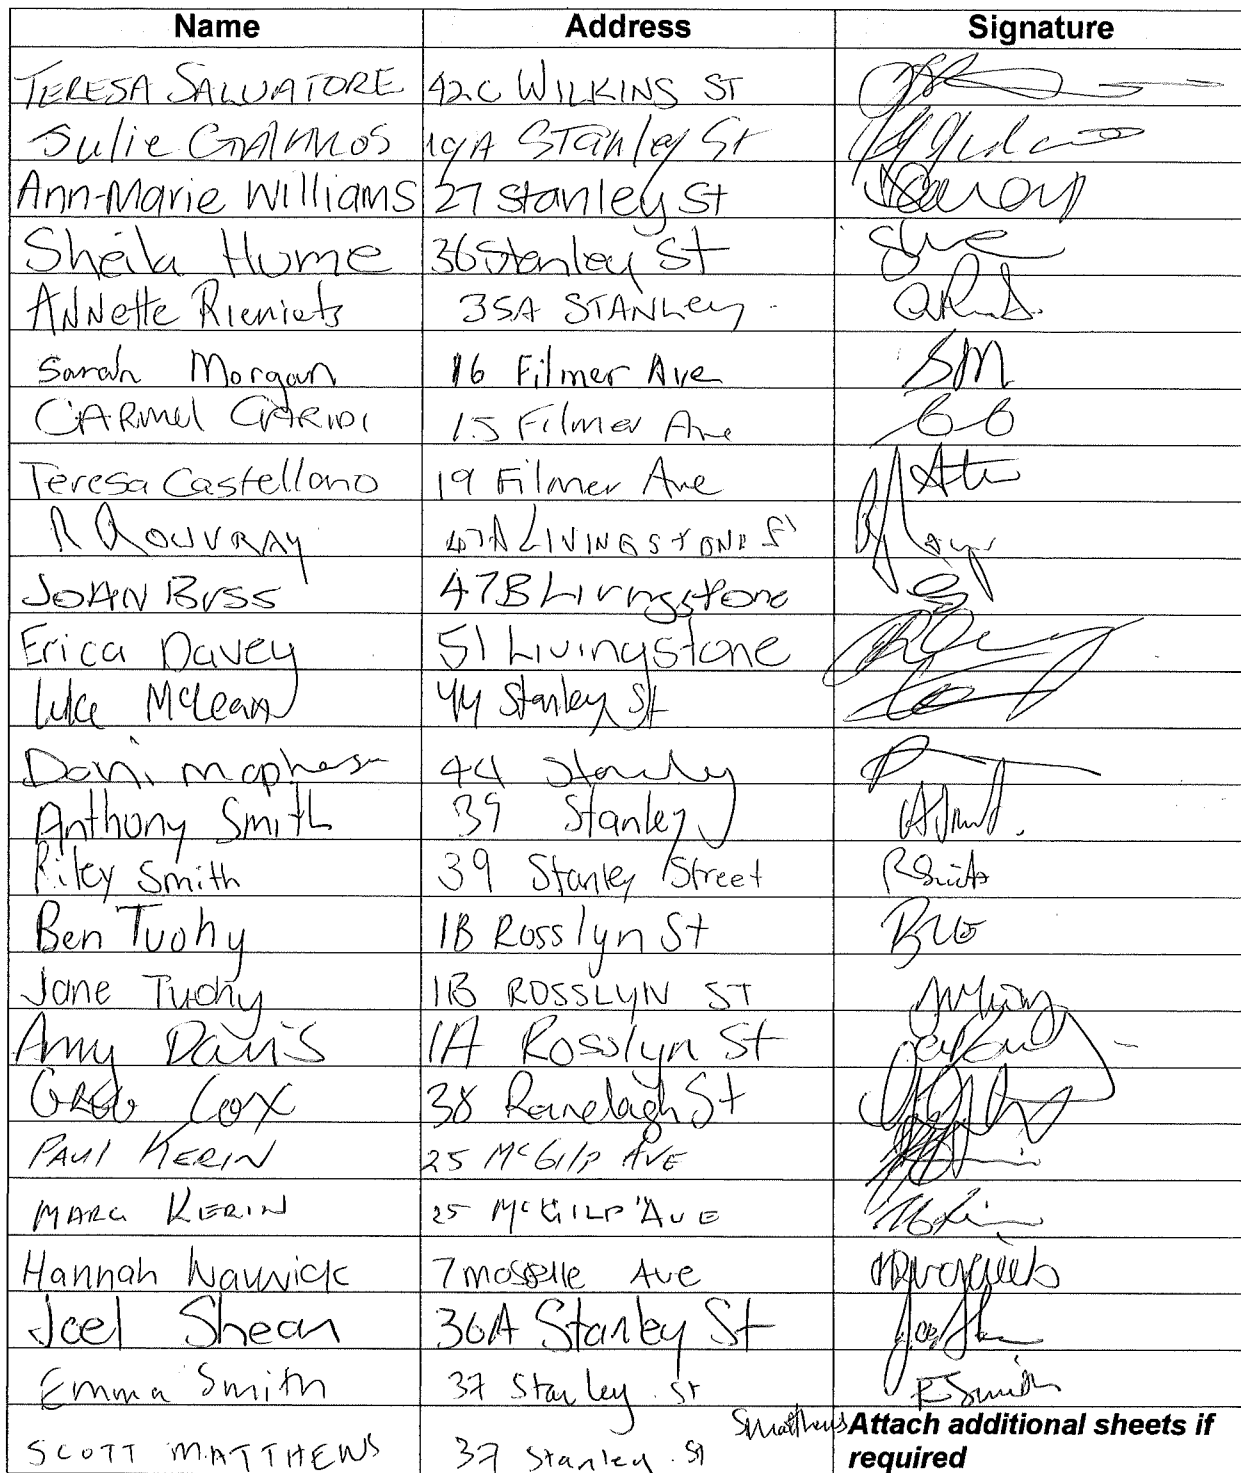 Name Address Signature
TERESA SALVATORE 42C WILKINS ST
Julie 19A Stanley St
Ann-Marie Williams 27 Stanley St
Sheila Hume 36 Stanley St
ANNette Rieniets 35A STANLey
Sarah Morgan 16 Filmer Ave SM
CARMel 15 Filmer Ave
Teresa Castellano 19 Filmer Ave
R ROUVRAY 47A LIVINGSTONE ST
JOAN BUSS 47B Livingstone
Erica Davey 51 Livingstone
Luke McLean 44 Stanley St
Dani 44 Stanley
Anthony Smith 39 Stanley
Riley Smith 39 Stanley Street R Smith
Ben Tuohy 1B Rosslyn St
Jane Tuohy 1B ROSSLYN ST
Amy Davis 1A Rosslyn St
Greg Cox 38 Ranelagh St
PAUl KERIN 25 McGilp AVE
MARG KERIN 25 McGILP AVE
Hannah Warwick 7 moselle Ave
Joel Shean 36A Stanley St
Emma Smith 37 Stanley St E Smith
SCOTT MATTHEWS 37 Stanley St Smatthews Attach additional sheets if
required